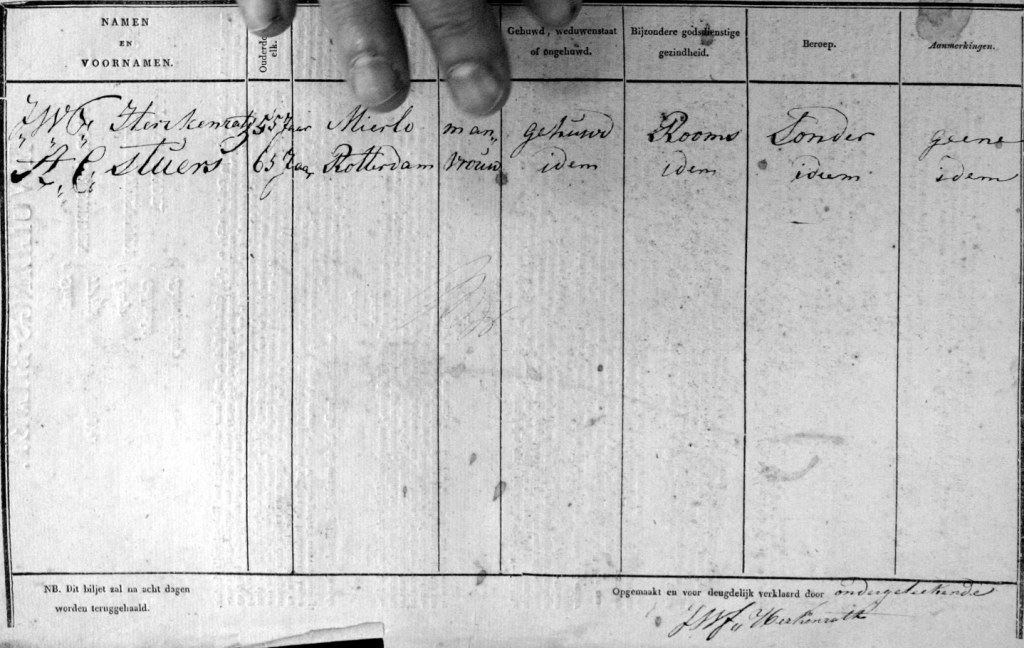 NAMEN
EN
VOORNAMEN.
elk.
Gehuwd, weduwenstaat
of ongehuwd.
Bijzondere godsdienstige
gezindheid.
Beroep.
Aanmerkingen.
J,, W,, F,, Herckenrath 55 Jaar Mierlo man,, gehuwd Rooms Sonder geene
A,, C,, Stuers 65 Jaar Rotterdam Vrouw idem idem idem idem
NB. Dit biljet zal na acht dagen
worden teruggehaald.
Opgemaakt en voor deugdelijk verklaard door ondergeteekende
JWf,, Herkenrath